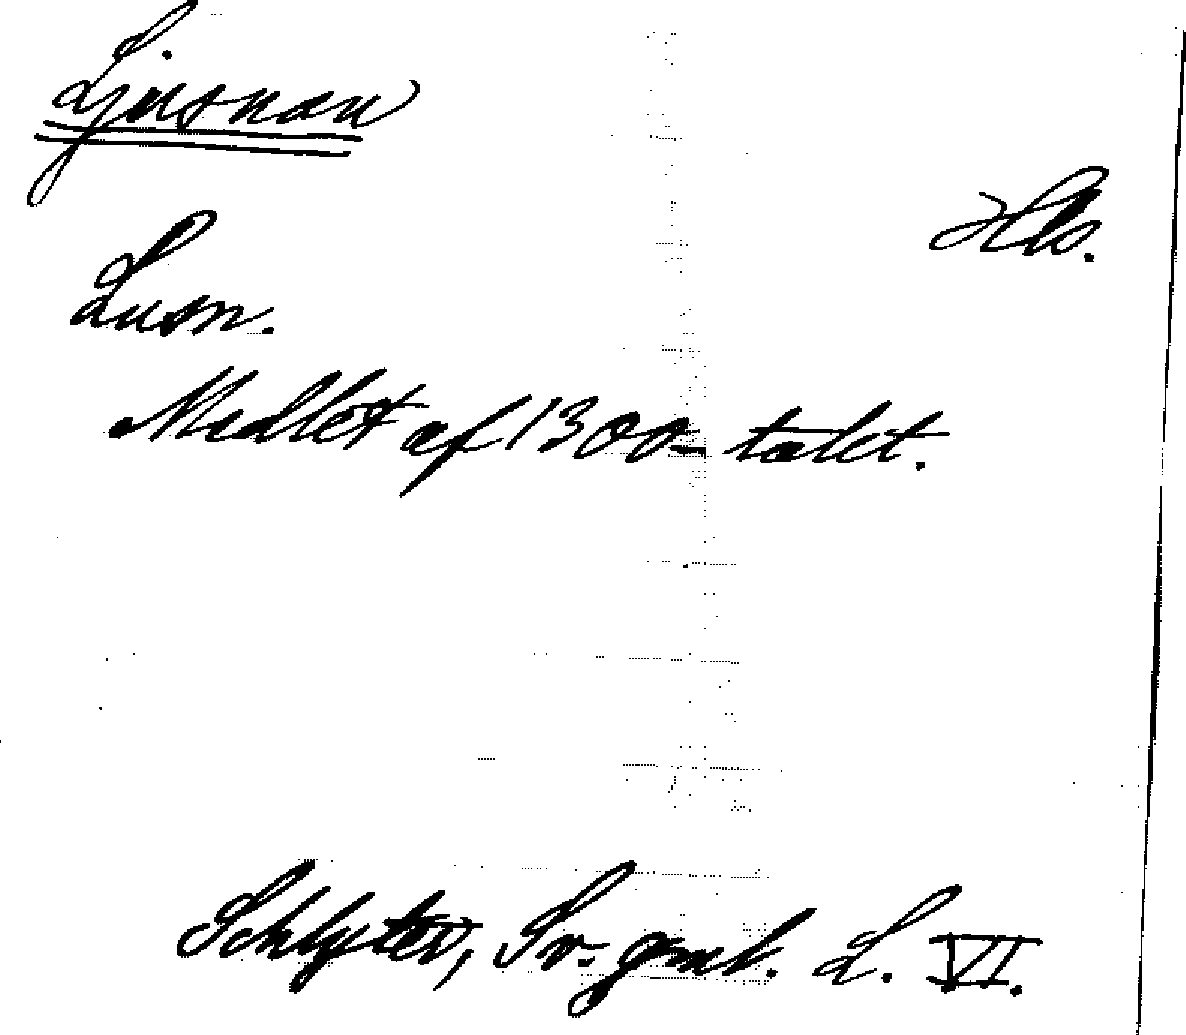 Ljusnan
Hls.
Lusn.
Medlet af 1300-talet.
Schlyter, Sv. gml. L. VI.